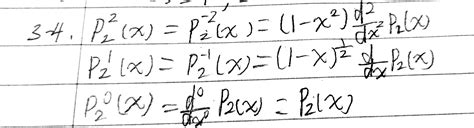 34. P₂²(x) = P₂⁻²(x) = (1-x²) d²/dx² P₂(x)
P₂¹(x) = P₂⁻¹(x) = (1-x)^½ d/dx P₂(x)
P₂⁰(x) = d⁰/dx⁰ P₂(x) = P₂(x)